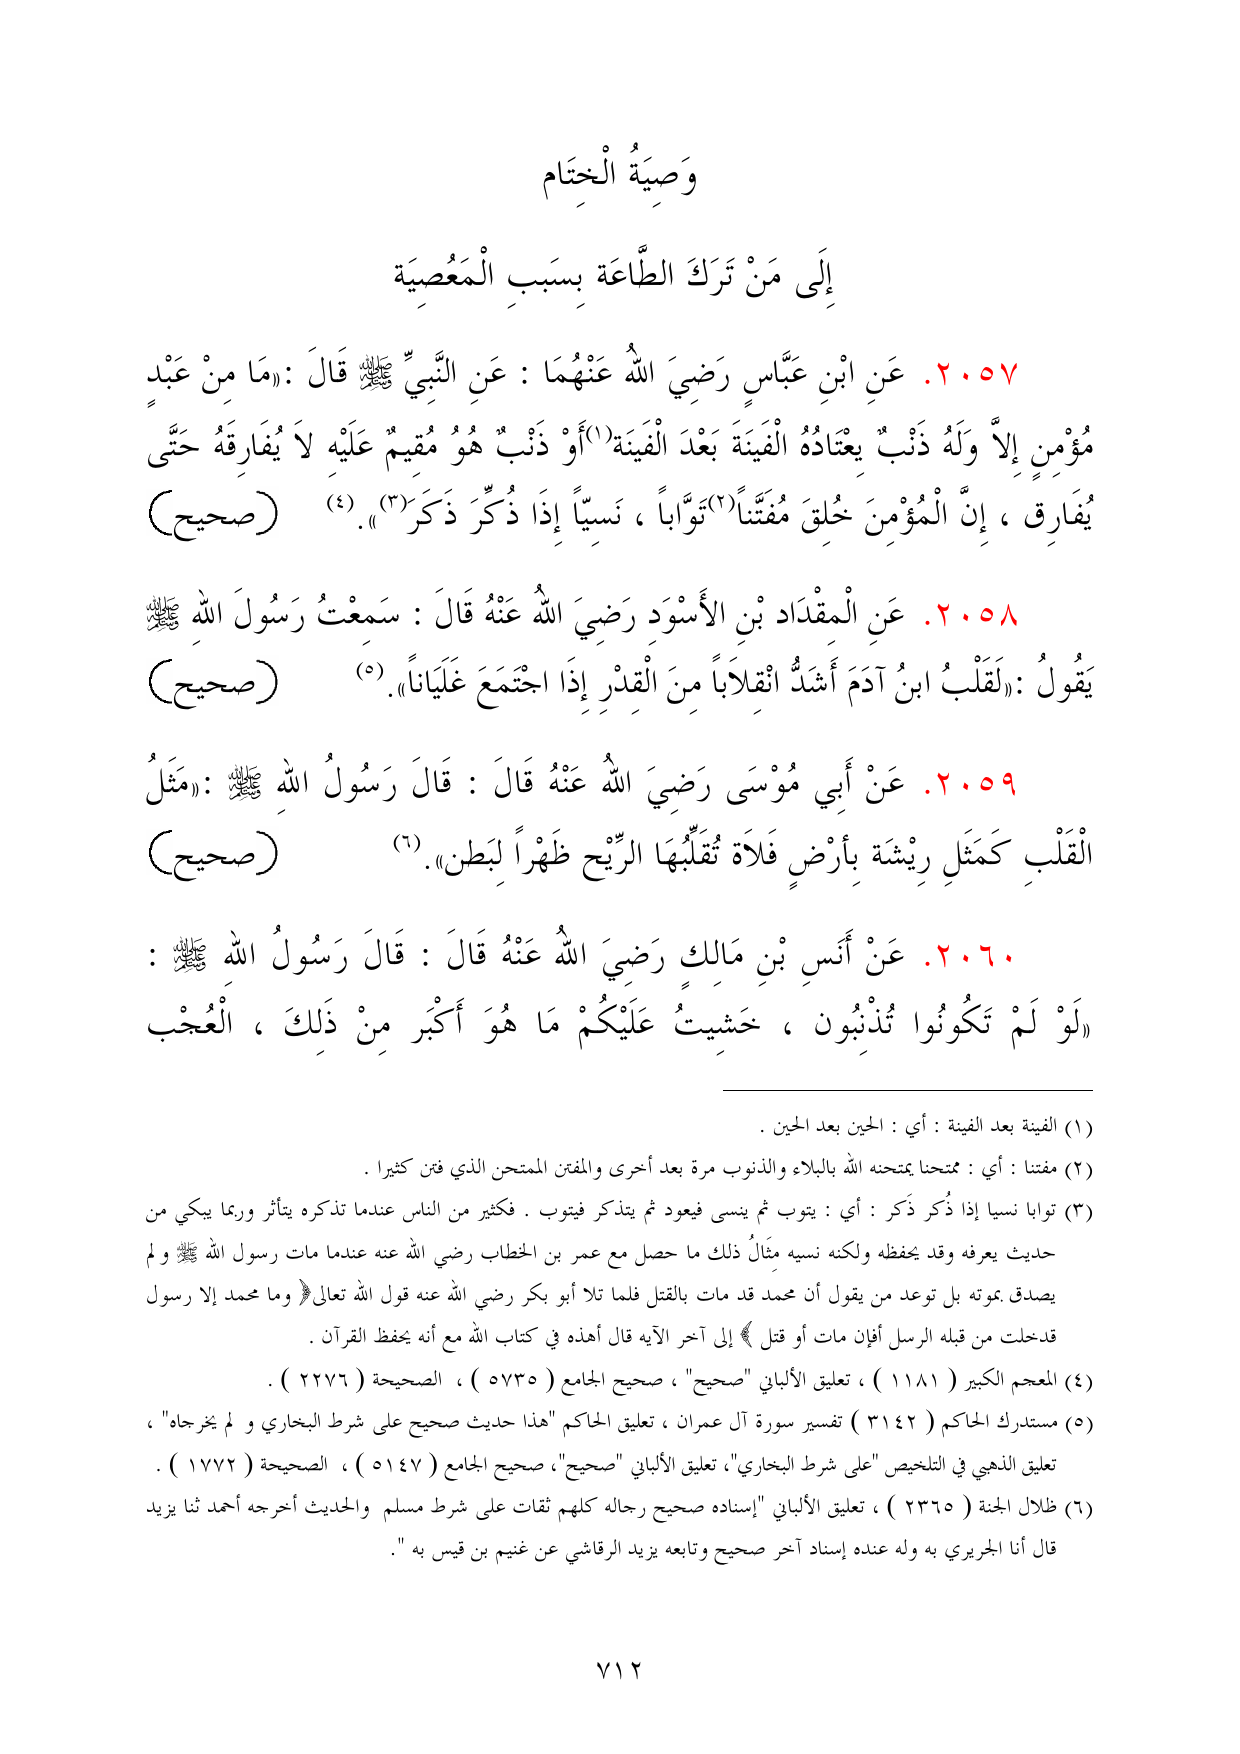 وَصِيَةُ الْخِتَام
إِلَى مَنْ تَرَكَ الطَّاعَة بِسَببِ الْمَعُصِيَة
٢٠٥٧. عَنِ ابْنِ عَبَّاسٍ رَضِيَ اللهُ عَنْهُمَا : عَنِ النَّبِيِّ ﷺ قَالَ :«مَا مِنْ عَبْدٍ
مُؤْمِنٍ إِلاَّ وَلَهُ ذَنْبٌ يِعْتَادُهُ الْفَينَةَ بَعْدَ الْفَينَة(١)أَوْ ذَنْبٌ هُوُ مُقِيمٌ عَلَيْهِ لاَ يُفَارِقَهُ حَتَّى
يُفَارِق ، إِنَّ الْمُؤْمِنَ خُلِقَ مُفَتَّناً(٢)تَوَّاباً ، نَسِيّاً إِذَا ذُكِّرَ ذَكَرَ(٣)».(٤) (صحيح)
٢٠٥٨. عَنِ الْمِقْدَاد بْنِ الأَسْوَدِ رَضِيَ اللهُ عَنْهُ قَالَ : سَمِعْتُ رَسُولَ اللهِ ﷺ
يَقُولُ :«لَقَلْبُ ابنُ آدَمَ أَشَدُّ انْقِلاَباً مِنَ الْقِدْرِ إِذَا اجْتَمَعَ غَلَيَاناً».(٥) (صحيح)
٢٠٥٩. عَنْ أَبِي مُوْسَى رَضِيَ اللهُ عَنْهُ قَالَ : قَالَ رَسُولُ اللهِ ﷺ :«مَثَلُ
الْقَلْبِ كَمَثَلِ رِيْشَة بِأرْضٍ فَلاَة تُقَلِّبُهَا الرِّيْح ظَهْراً لِبَطن».(٦) (صحيح)
٢٠٦٠. عَنْ أَنَسِ بْنِ مَالِكٍ رَضِيَ اللهُ عَنْهُ قَالَ : قَالَ رَسُولُ اللهِ ﷺ :
«لَوْ لَمْ تَكُونُوا تُذْنِبُون ، خَشِيتُ عَلَيْكُمْ مَا هُوَ أَكْبَر مِنْ ذَلِكَ ، الْعُجْب
(١) الفينة بعد الفينة : أي : الحين بعد الحين .
(٢) مفتنا : أي : ممتحنا يمتحنه الله بالبلاء والذنوب مرة بعد أخرى والمفتن الممتحن الذي فتن كثيرا .
(٣) توابا نسيا إذا ذُكر ذَكر : أي : يتوب ثم ينسى فيعود ثم يتذكر فيتوب . فكثير من الناس عندما تذكره يتأثر وربما يبكي من
حديث يعرفه وقد يحفظه ولكنه نسيه مِثَالُ ذلك ما حصل مع عمر بن الخطاب رضي الله عنه عندما مات رسول الله ﷺ و لم
يصدق بموته بل توعد من يقول أن محمد قد مات بالقتل فلما تلا أبو بكر رضي الله عنه قول الله تعالى﴿ وما محمد إلا رسول
قدخلت من قبله الرسل أفإن مات أو قتل ﴾ إلى آخر الآيه قال أهذه في كتاب الله مع أنه يحفظ القرآن .
(٤) المعجم الكبير ( ١١٨١ ) ، تعليق الألباني "صحيح" ، صحيح الجامع ( ٥٧٣٥ ) ، الصحيحة ( ٢٢٧٦ ) .
(٥) مستدرك الحاكم ( ٣١٤٢ ) تفسير سورة آل عمران ، تعليق الحاكم "هذا حديث صحيح على شرط البخاري و لم يخرجاه" ،
تعليق الذهبي في التلخيص "على شرط البخاري"، تعليق الألباني "صحيح"، صحيح الجامع ( ٥١٤٧ ) ، الصحيحة ( ١٧٧٢ ) .
(٦) ظلال الجنة ( ٢٣٦٥ ) ، تعليق الألباني "إسناده صحيح رجاله كلهم ثقات على شرط مسلم والحديث أخرجه أحمد ثنا يزيد
قال أنا الجريري به وله عنده إسناد آخر صحيح وتابعه يزيد الرقاشي عن غنيم بن قيس به ".
٧١٢